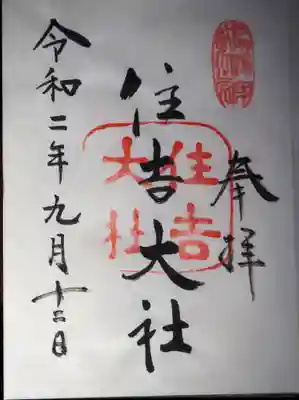 奉拝
住吉大社
住吉大社
令和二年九月十二日